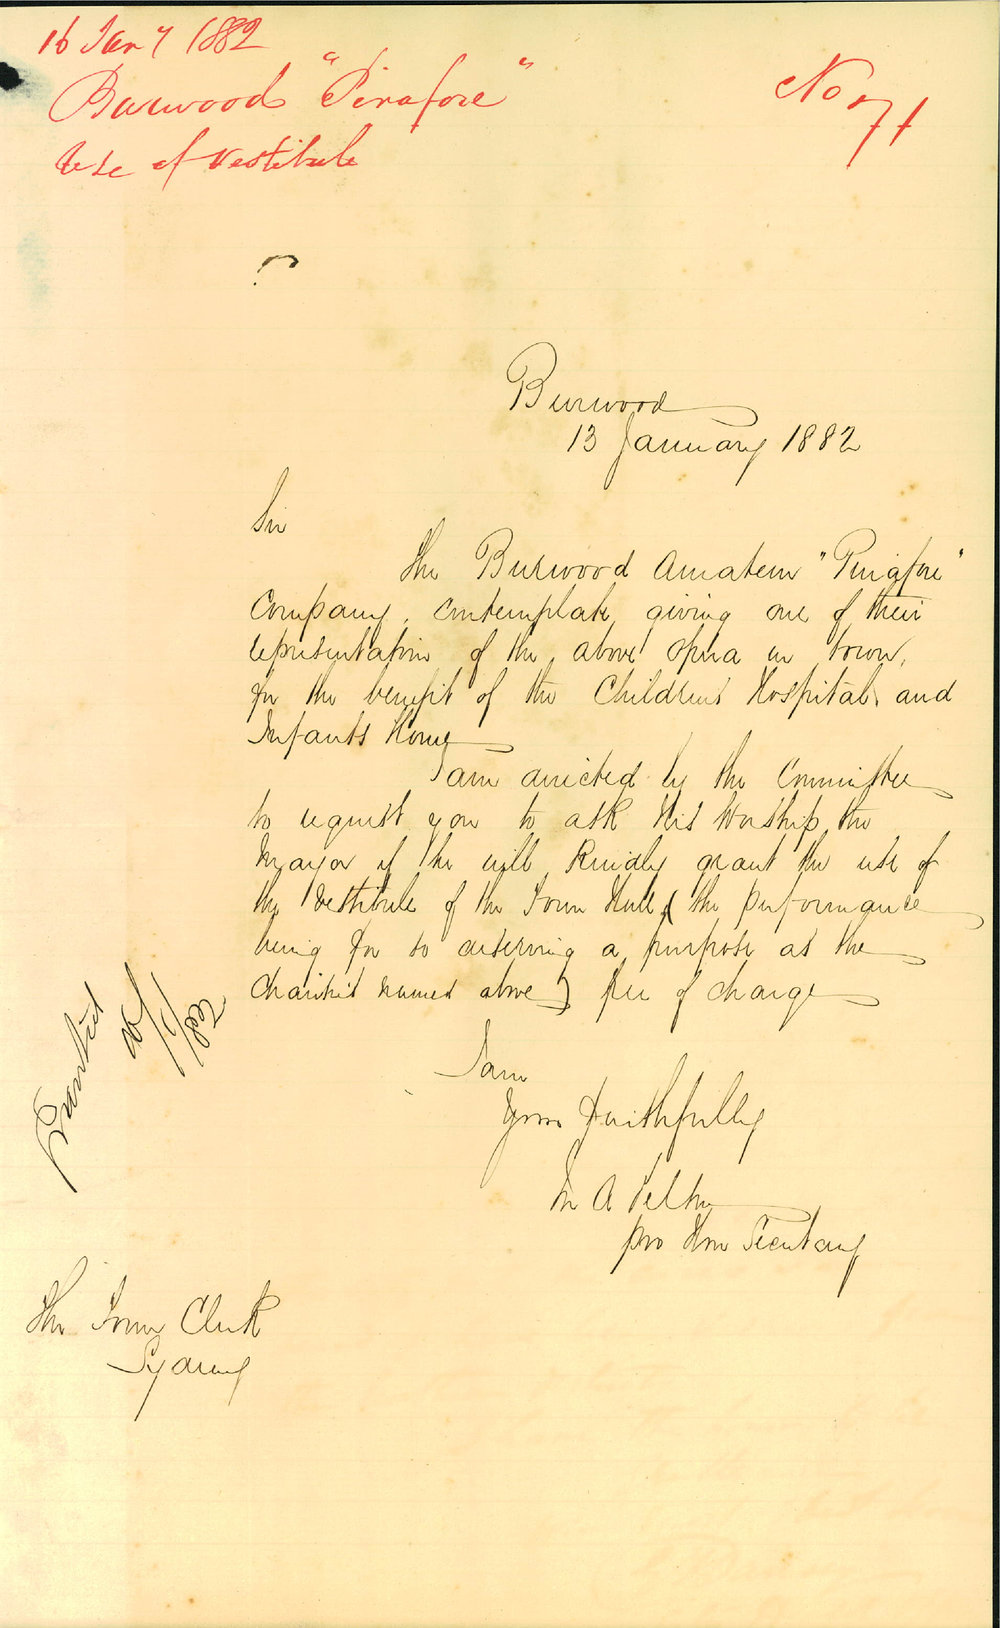 16 Jany 1882
Burwood "Pinafore"
Use of Vestibule
No 71
Burwood
13 January 1882
Sir
The Burwood Amateur "Pinafore"
Company, contemplate giving one of their
representations of the above opera in town,
for the benefit of the Childrens Hospital and
Infants Home
I am directed by the Committee
to request you to ask His Worship the
Mayor if he will kindly grant the use of
the Vestibule of the Town Hall, (the performance
being for so deserving a purpose as the
Charities named above) free of charge
I am
Yours Faithfully
pro Hon Secretary
Granted
/1/82
The Town Clerk
Sydney